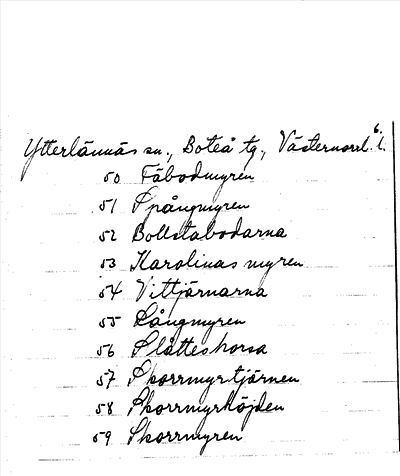 Ytterlännäs sn., Boteå tg., Västernorrl. l.
6.
50 Fäbodmyren
51 Spångmyren
52 Bollstabodarna
53 Karolinas myren
54 Vittjärnarna
55 Långmyren
56 Slåtteshorsa
57 Skorrmyrtjärnen
58 Skorrmyrhöjden
59 Skorrmyren